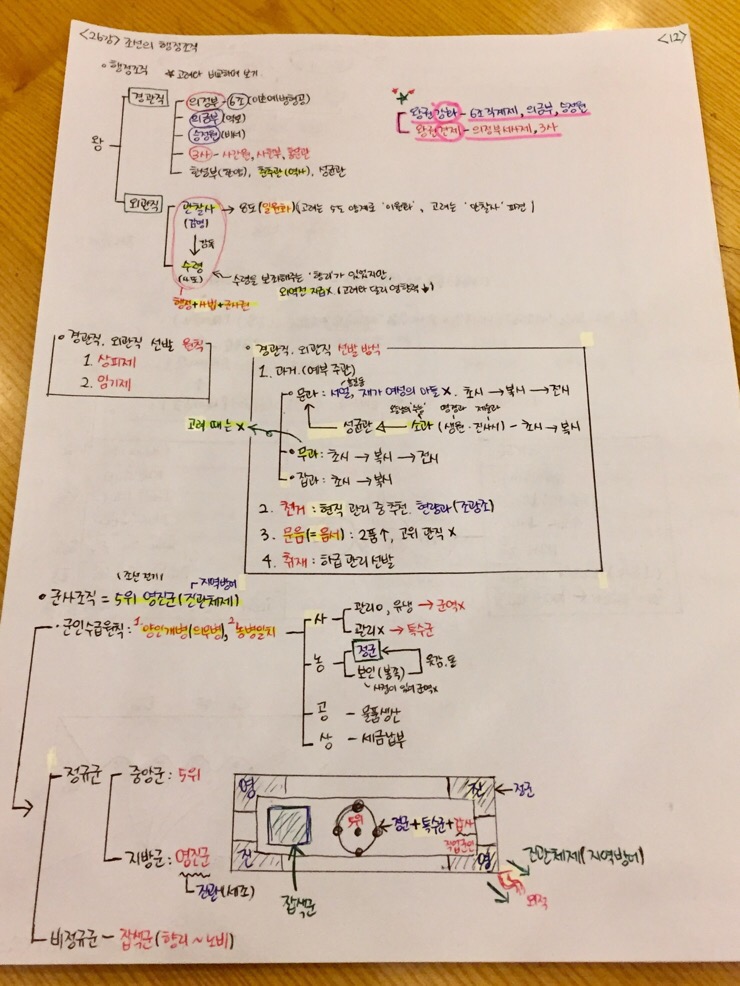 <26강> 조선의 행정조직
<12>
◦행정조직 ★고려와 비교하여 보기
왕
경관직
의정부 - 6조 (이호예병형공)
의금부 (역모)
승정원 (비서)
3사 - 사간원, 사헌부, 홍문관
한성부(한양), 춘추관(역사), 성균관
왕권강화 - 6조직계제, 의금부, 승정원
왕권견제 - 의정부서사제, 3사
외관직
관찰사 → 8도 (일원화) (고려는 5도 양계로 '이원화', 고려는 '안찰사' 파견)
(감영)
↓ 감독
수령
수령을 보좌해주는 '향리'가 있었지만,
외역전 지급 X (고려와 달리 영향력↓)
행정+사법+군사권
◦경관직. 외관직 선발 원칙
1. 상피제
2. 임기제
◦경관직. 외관직 선발 방식
1. 과거. (예부 주관)
◦문과: 서얼, 재가 여성의 아들 X. 초시 → 복시 → 전시
명경과 제술과
성균관 ← 소과 (생원·진사시) - 초시 → 복시
고려 때는 X
◦무과: 초시 → 복시 → 전시
◦잡과: 초시 → 복시
2. 천거: 현직 관리 중 추천. 현량과 (조광조)
3. 문음(=음서): 2품↑, 고위 관직 X
4. 취재: 하급 관리 선발
(조선 전기) 지역방어
◦군사조직 = 5위 영진군(진관체제)
·군인수급원칙: 1.양인개병(의무병), 2.농병일치
사
관리O, 유생 → 군역X
관리X → 특수군
농
정군
보인(봉족) 옷감, 돈
공 - 물품생산
상 - 세금납부
정규군
중앙군: 5위
지방군: 영진군
진관(세조)
비정규군 - 잡색군(향리~노비)
영
진
정군
5위
정군+특수군+갑사
직업군인
진
영
잡색군
진관체제(지역방어)
외적